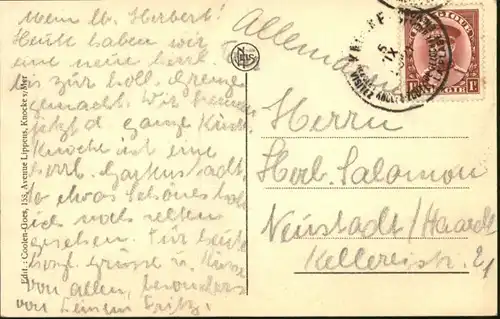 Mein lb. Herbert!
Heute haben wir
eine herrl. Tour
bis zur holl. Grenze
gemacht. Wir kennen
jetzt d. ganze Küste
Knocke ist eine
herrl. Gartenstadt.
So etwas Schönes hab
ich noch selten
gesehen. Für heute
herzl. Grüsse u. Küsse
von allen, besonders
von Deinem Fritz.
Edit.: Coolen-Goes, 155, Avenue Lippens, Knocke s/Mer
NELS
Allemagne
BELGIQUE
1F
Herrn
Herb. Salomon
Neustadt/Haardt
Kellereistr. 21